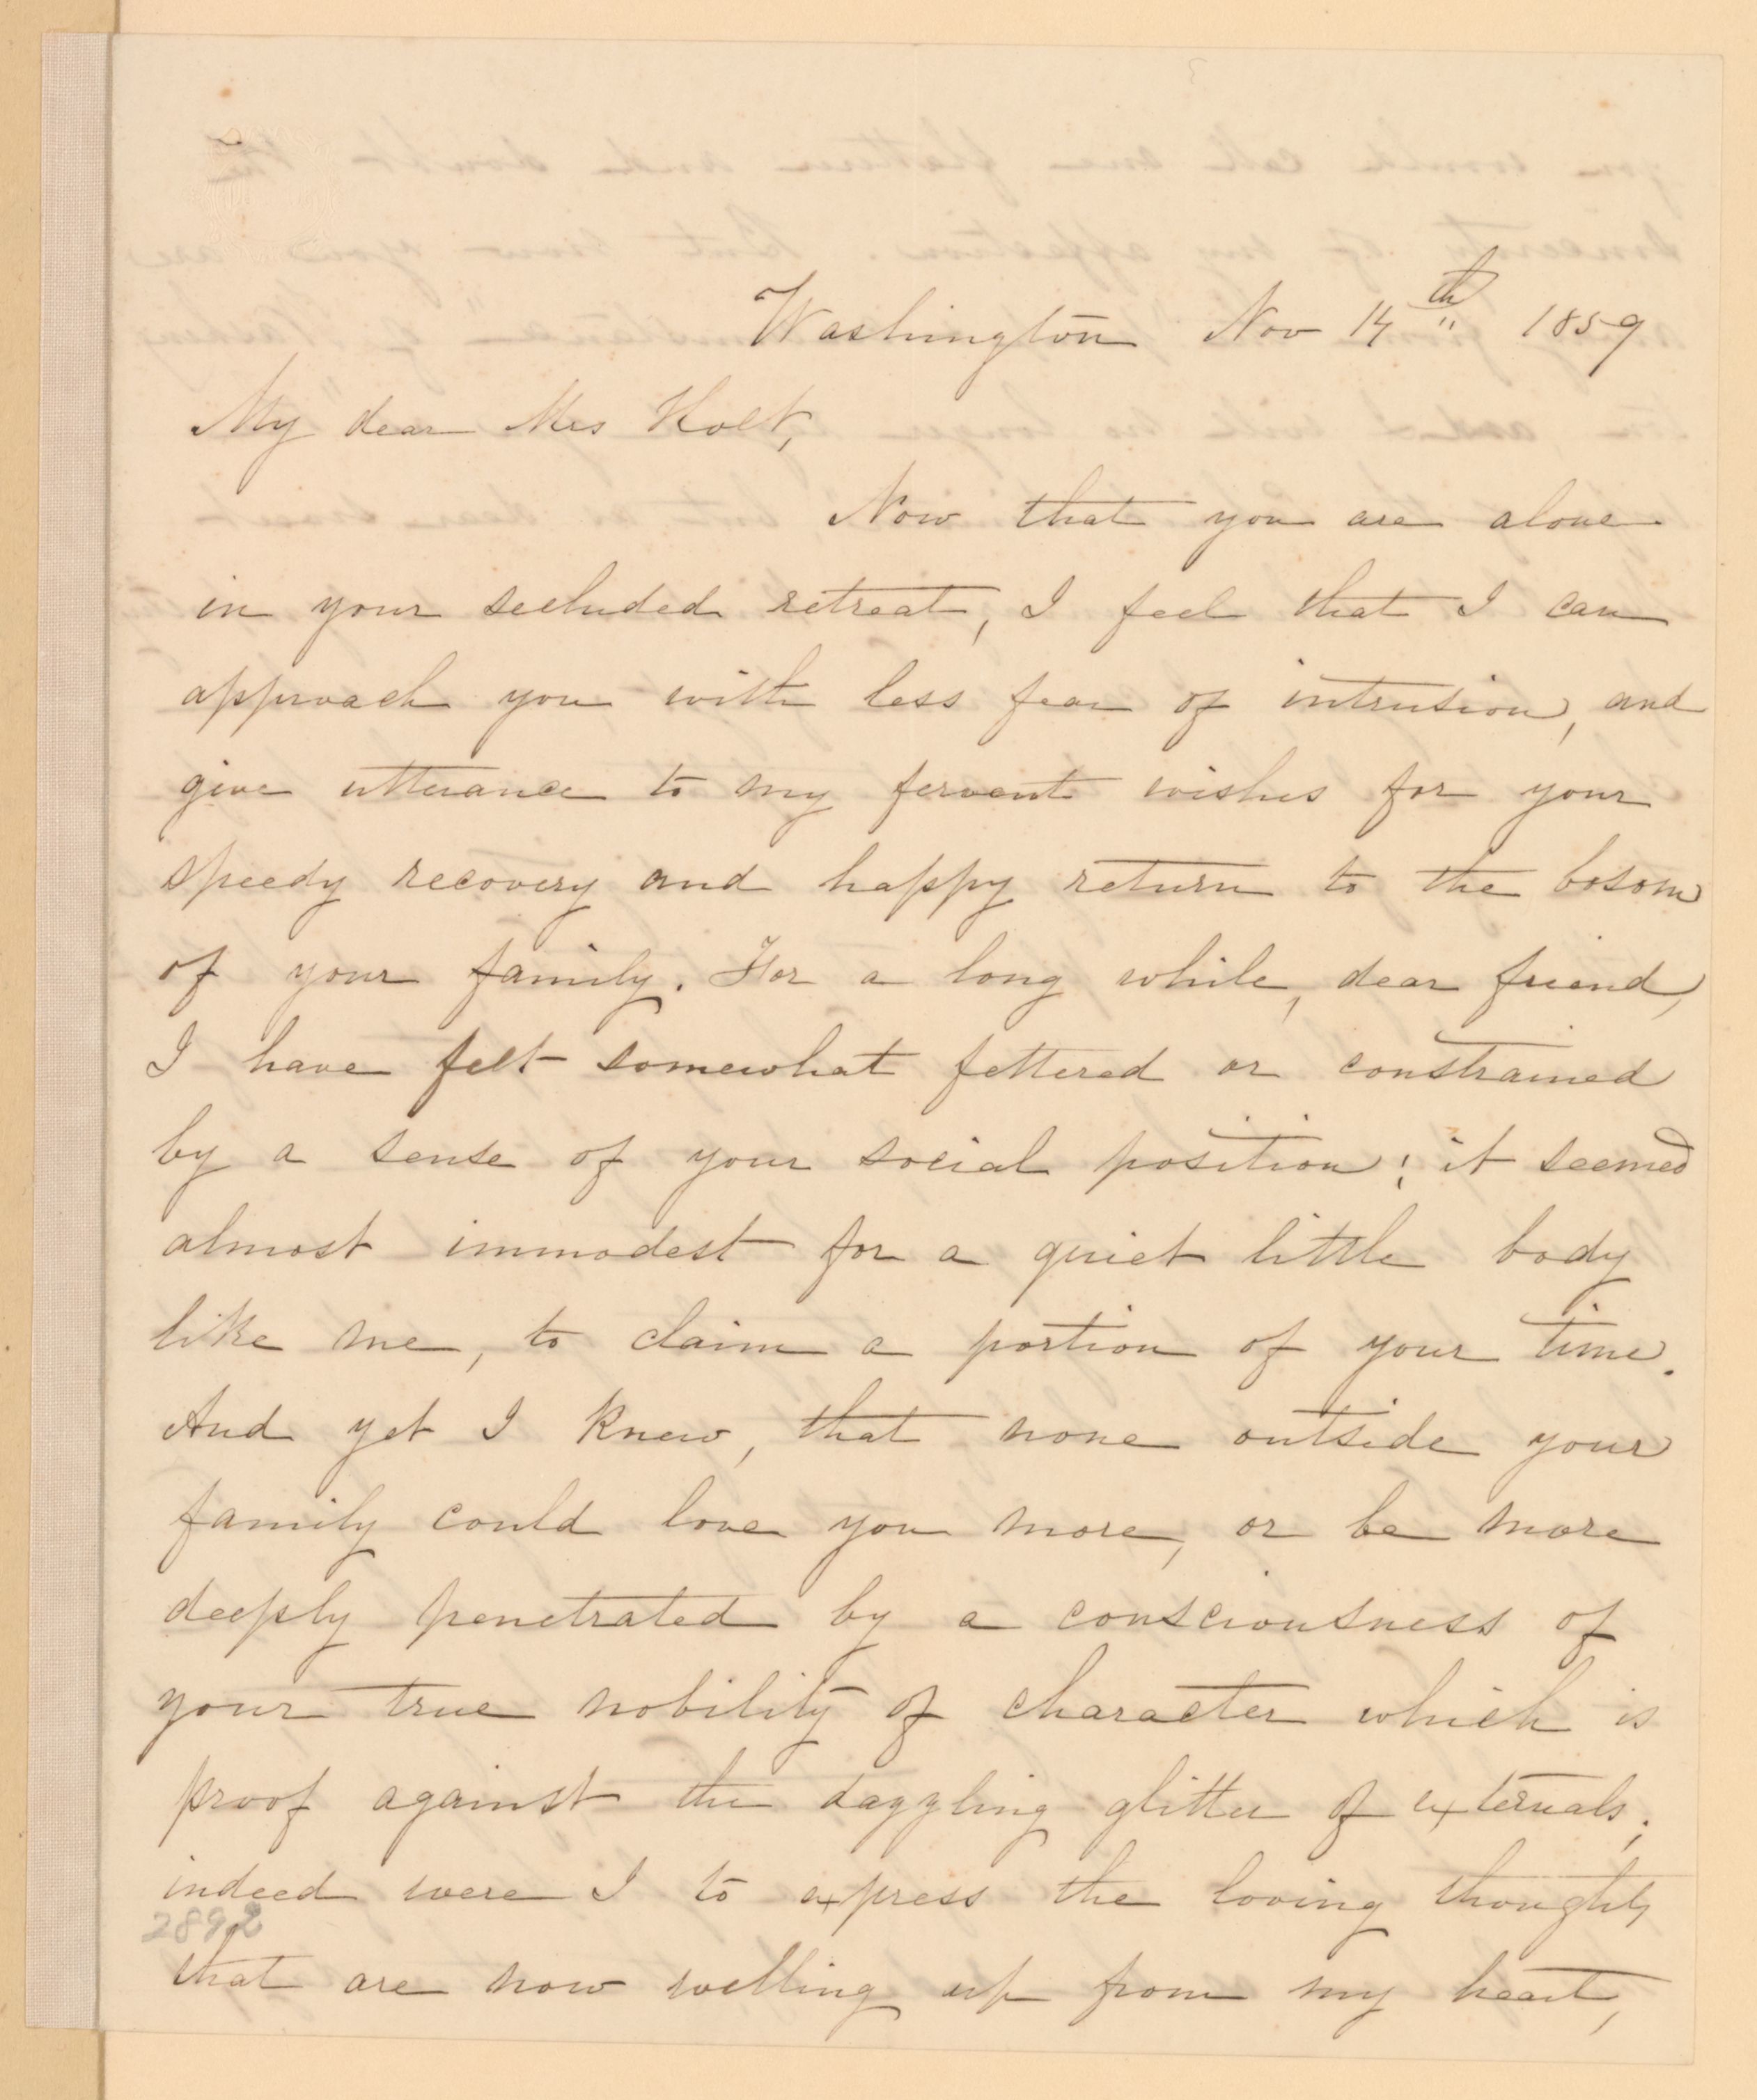 Washington Nov 14th 1859
My dear Mrs Holt,
Now that you are alone
in your secluded retreat, I feel that I can
approach you with less fear of intrusion, and
give utterance to my fervent wishes for your
speedy recovery and happy return to the bosom
of your family. For a long while, dear friend,
I have felt somewhat fettered or constrained
by a sense of your social position; it seemed
almost immodest for a quiet little body
like me, to claim a portion of your time.
And yet I knew, that none outside your
family could love you more, or be more
deeply penetrated by a consciousness of
your true nobility of character which is
proof against the dazzling glitter of externals;
indeed were I to express the loving thoughts
2892
that are now welling up from my heart,